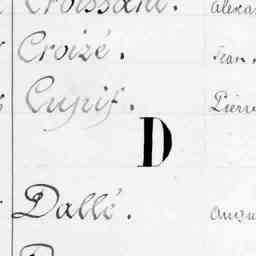 Croissant. Alexa
Croizé. Jean
Cuyif. Pierr
D
Dallé. Augu